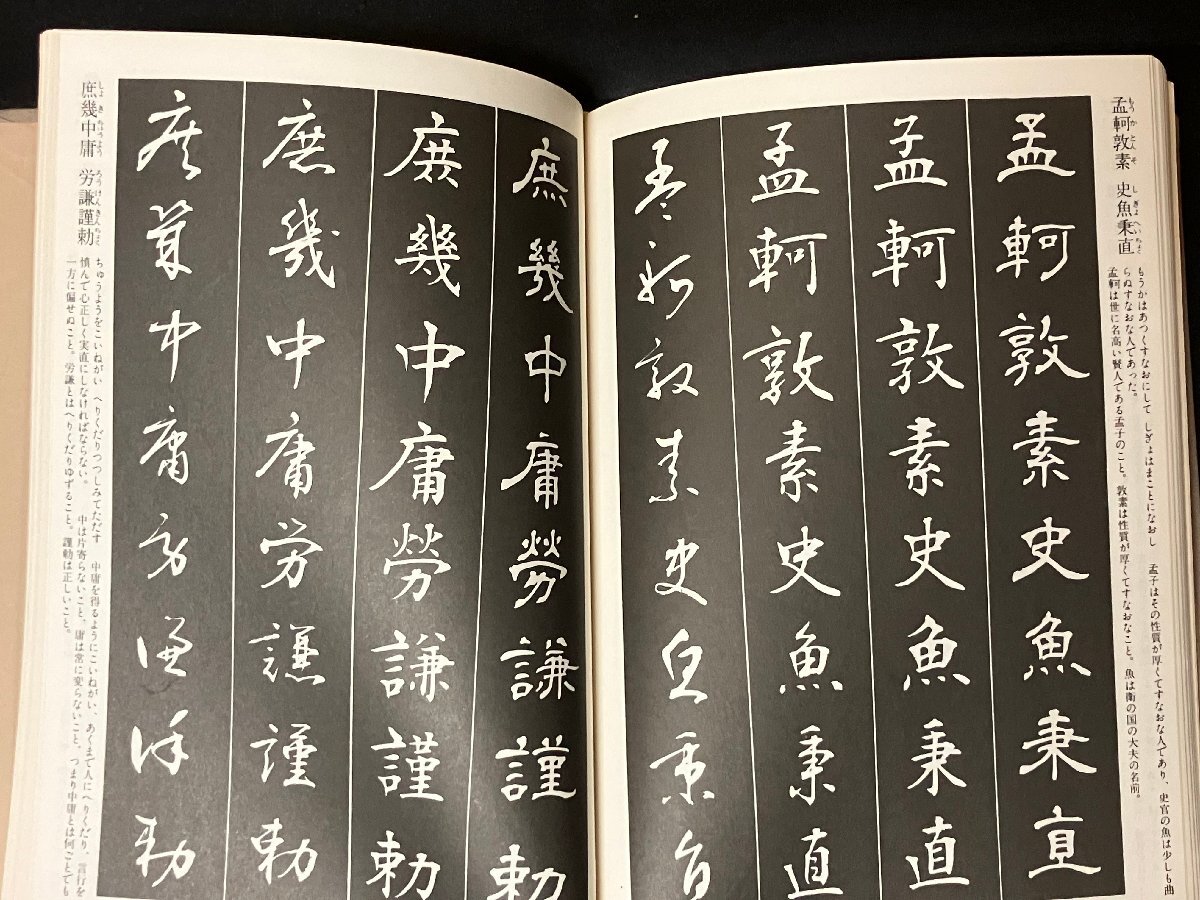 孟軻敦素 史魚秉直
もうかとんそ しぎょへいちょく
もうかはあつくすなおにして しぎょはまことになおし 孟子はその性質が厚くてすなおな人であり、史官の魚は少しも曲
らぬすなおな人であった。
孟軻は世に名高い賢人である孟子のこと。敦素は性質が厚くてすなおなこと。魚は衛の国の大夫の名前。
孟軻敦素史魚秉直
孟軻敦素史魚秉直
孟軻敦素史魚秉直
孟軻敦素史魚秉直
庶幾中庸勞謙謹勅
庶幾中庸勞謙謹勅
庶幾中庸労謙謹勅
庶幾中庸労謙謹勅
庶幾中庸 労謙謹勅
しょきちゅうよう ろうけんきんちょく
ちゅうようをこいねがい へりくだりつつしみてただす 中庸を得るようにこいねがい、あくまで人にへりくだり、言行を
慎んで心正しく実直にしなければならない。 中は片寄らないこと、庸は常に変らないこと、つまり中庸とは何ごとでも
一方に偏せぬこと。労謙とはへりくだりゆずること。謹勅は正しいこと。